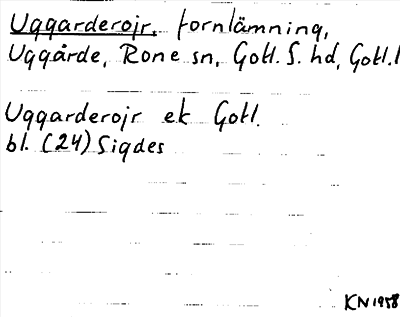 Uggarderojr, fornlämning,
Uggårde, Rone sn, Gotl. S. hd, Gotl. l
Uggarderojr ek Gotl.
bl. (24) Sigdes
KN 1958